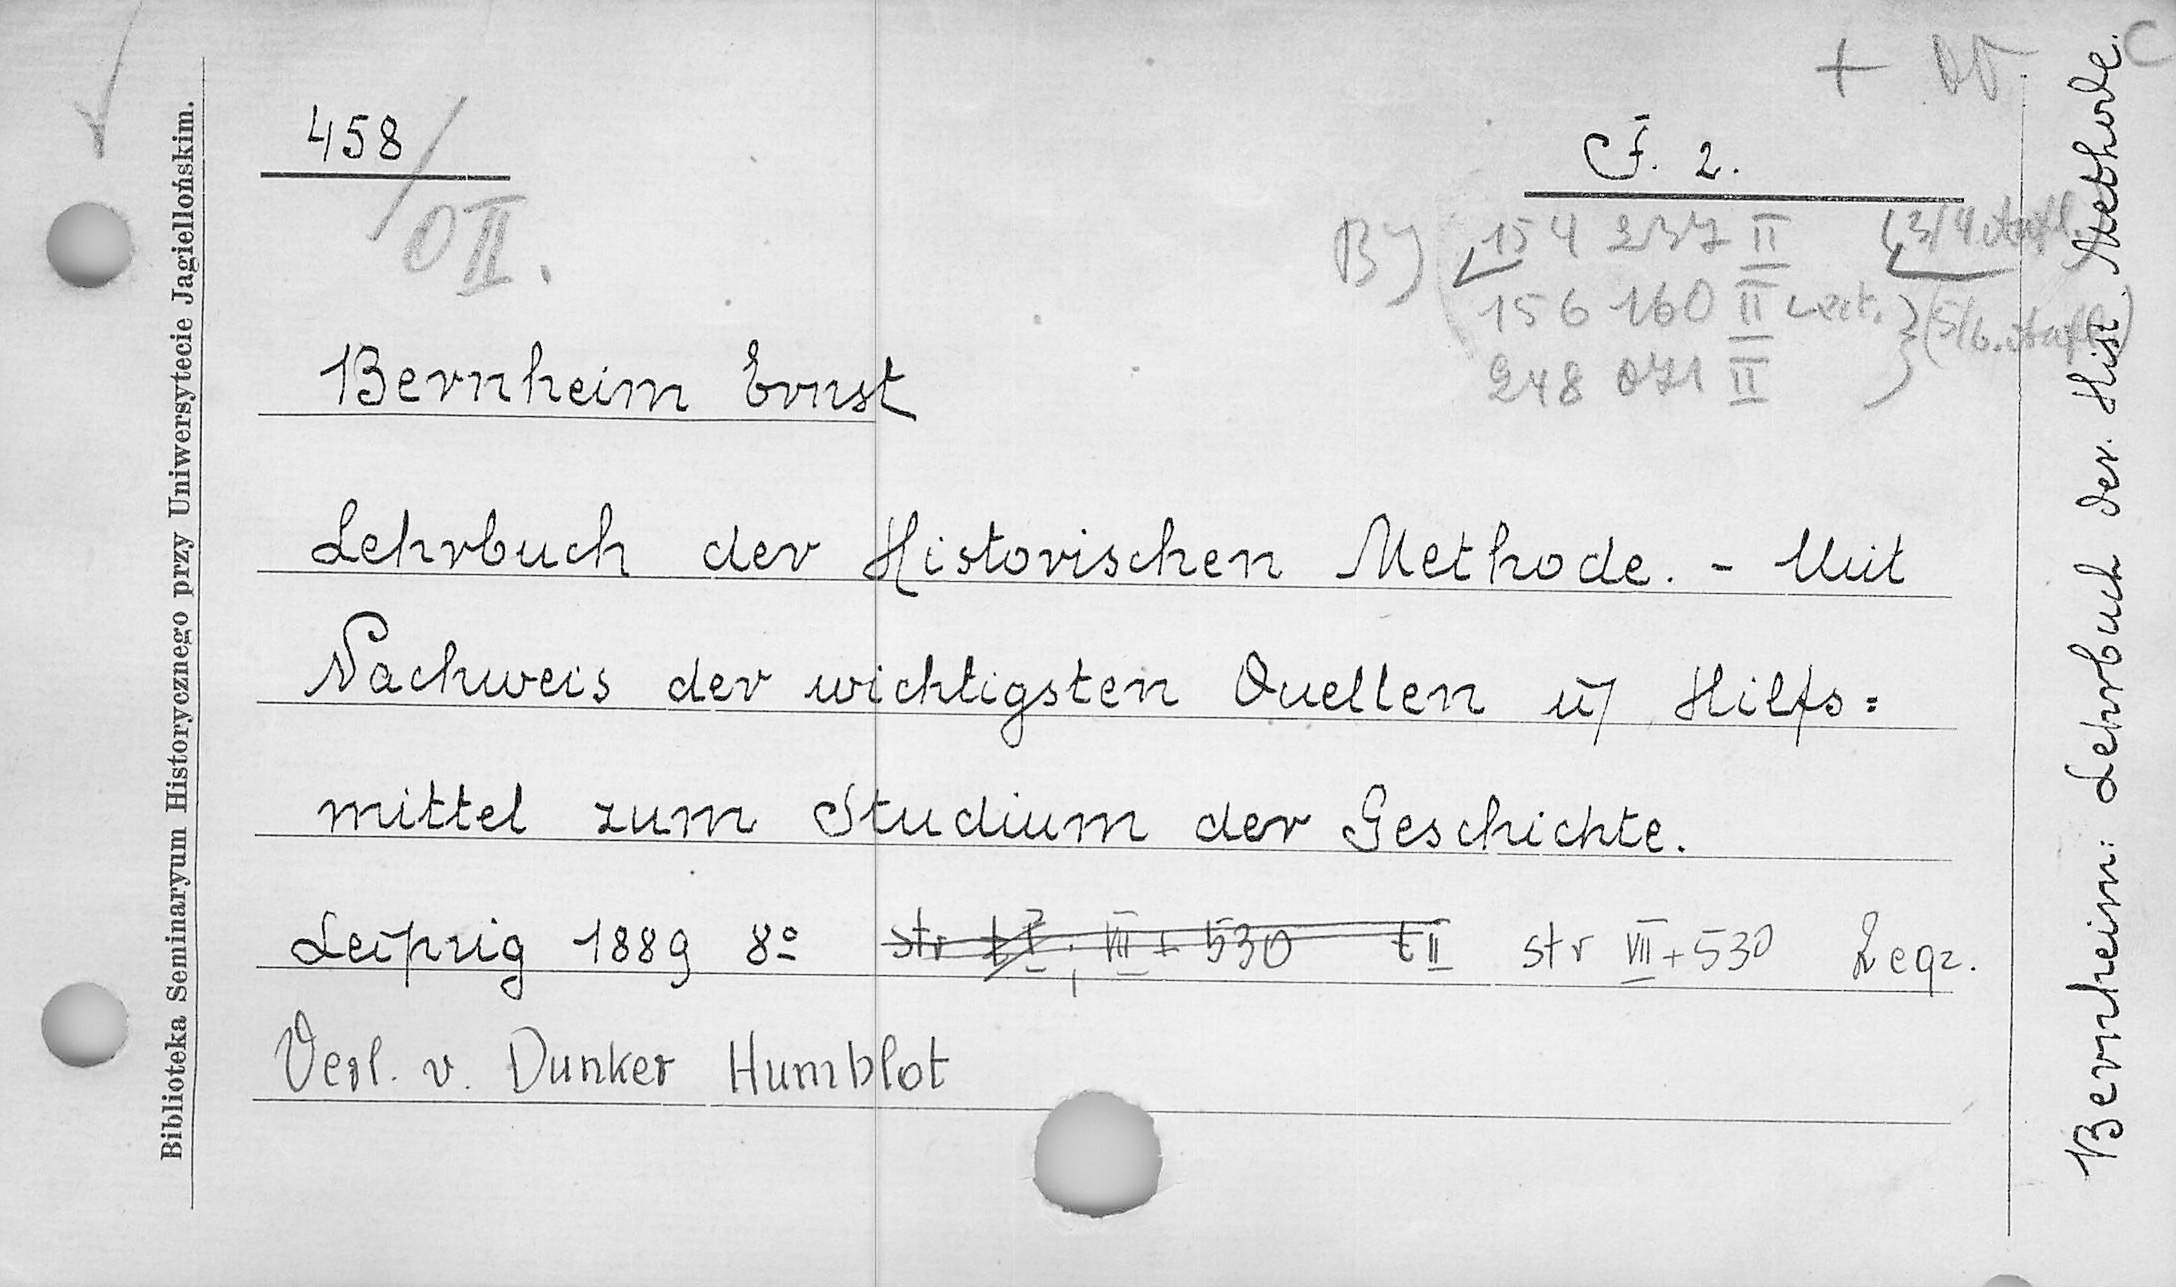 Biblioteka Seminaryum Historycznego przy Uniwersytecie Jagiellońskim.
458
O II.
+
C
F. 2.
B) 154 237 II (3/4. Aufl.)
156 160 II Lect. (5/6. Aufl.)
248 071 II
Bernheim Ernst
Lehrbuch der Historischen Methode. - Mit
Nachweis der wichtigsten Quellen u/ Hilfs=
mittel zum Studium der Geschichte.
Leipzig 1889 8º str t I; VII + 530 t II str VIII + 530 2 egz.
Verl. v. Dunker Humblot
Bernheim: Lehrbuch der Hist. Methode.